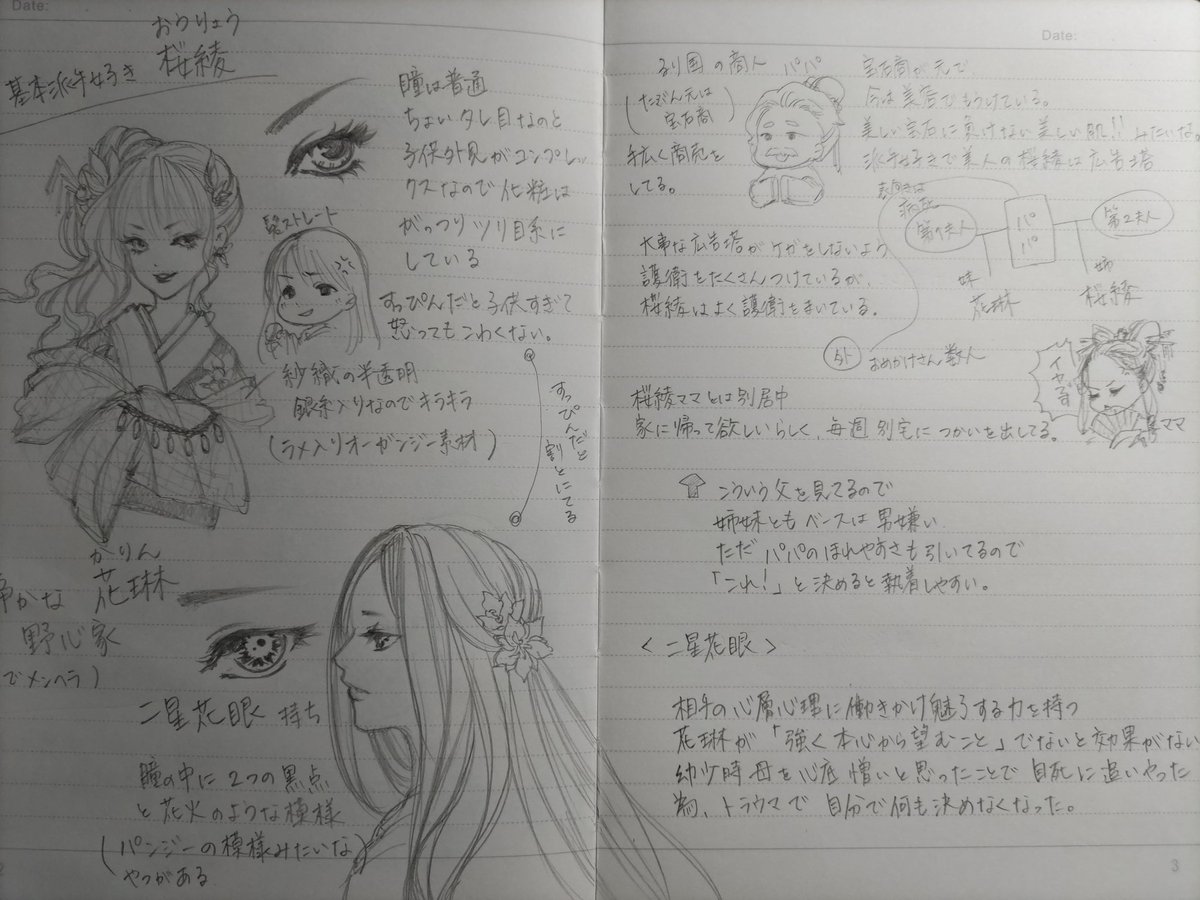 Date:
おうりょう
桜綾
基本派手好き
瞳は普通
ちょいタレ目なのと
子供外見がコンプレッ
クスなので化粧は
がっつりツリ目系に
している
髪ストレート
すっぴんだと子供すぎて
怒ってもこわくない。
紗織の半透明
銀糸入りなのでキラキラ
(ラメ入りオーガンジー素材)
すっぴんだと
割とにてる
かりん
花琳
かな
野心家
でメンヘラ)
二星花眼 持ち
瞳の中に2つの黒点
と花火のような模様
(パンジーの模様みたいな)
やつがある
Date:
るり国の商人 パパ
(たぶん元は
宝石商)
手広く商売を
してる。
宝石商が元で
今は美容でもうけている。
美しい宝石に負けない美しい肌!! みたいな
派手好きで美人の桜綾は広告塔
第1夫人
パパ
第2夫人
妹
花琳
姉
桜綾
大事な広告塔がケガをしないよう
護衛をたくさんつけているが、
桜綾はよく護衛をまいている。
外 おめかけさん数人
桜綾ママとは別居中
家に帰って欲しいらしく、毎週 別宅に つかいを出してる。
イヤです
ママ
こういう父を見てるので
姉妹ともベースは男嫌い
ただ パパのほれやすさも引いてるので
「これ!」と決めると執着しやすい。
<二星花眼>
相手の心層心理に働きかけ魅了する力を持つ
花琳が「強く本心から望むこと」でないと効果がない
幼少時母を心底憎いと思ったことで自死に追いやった
為、トラウマで 自分で何も決めなくなった。
3